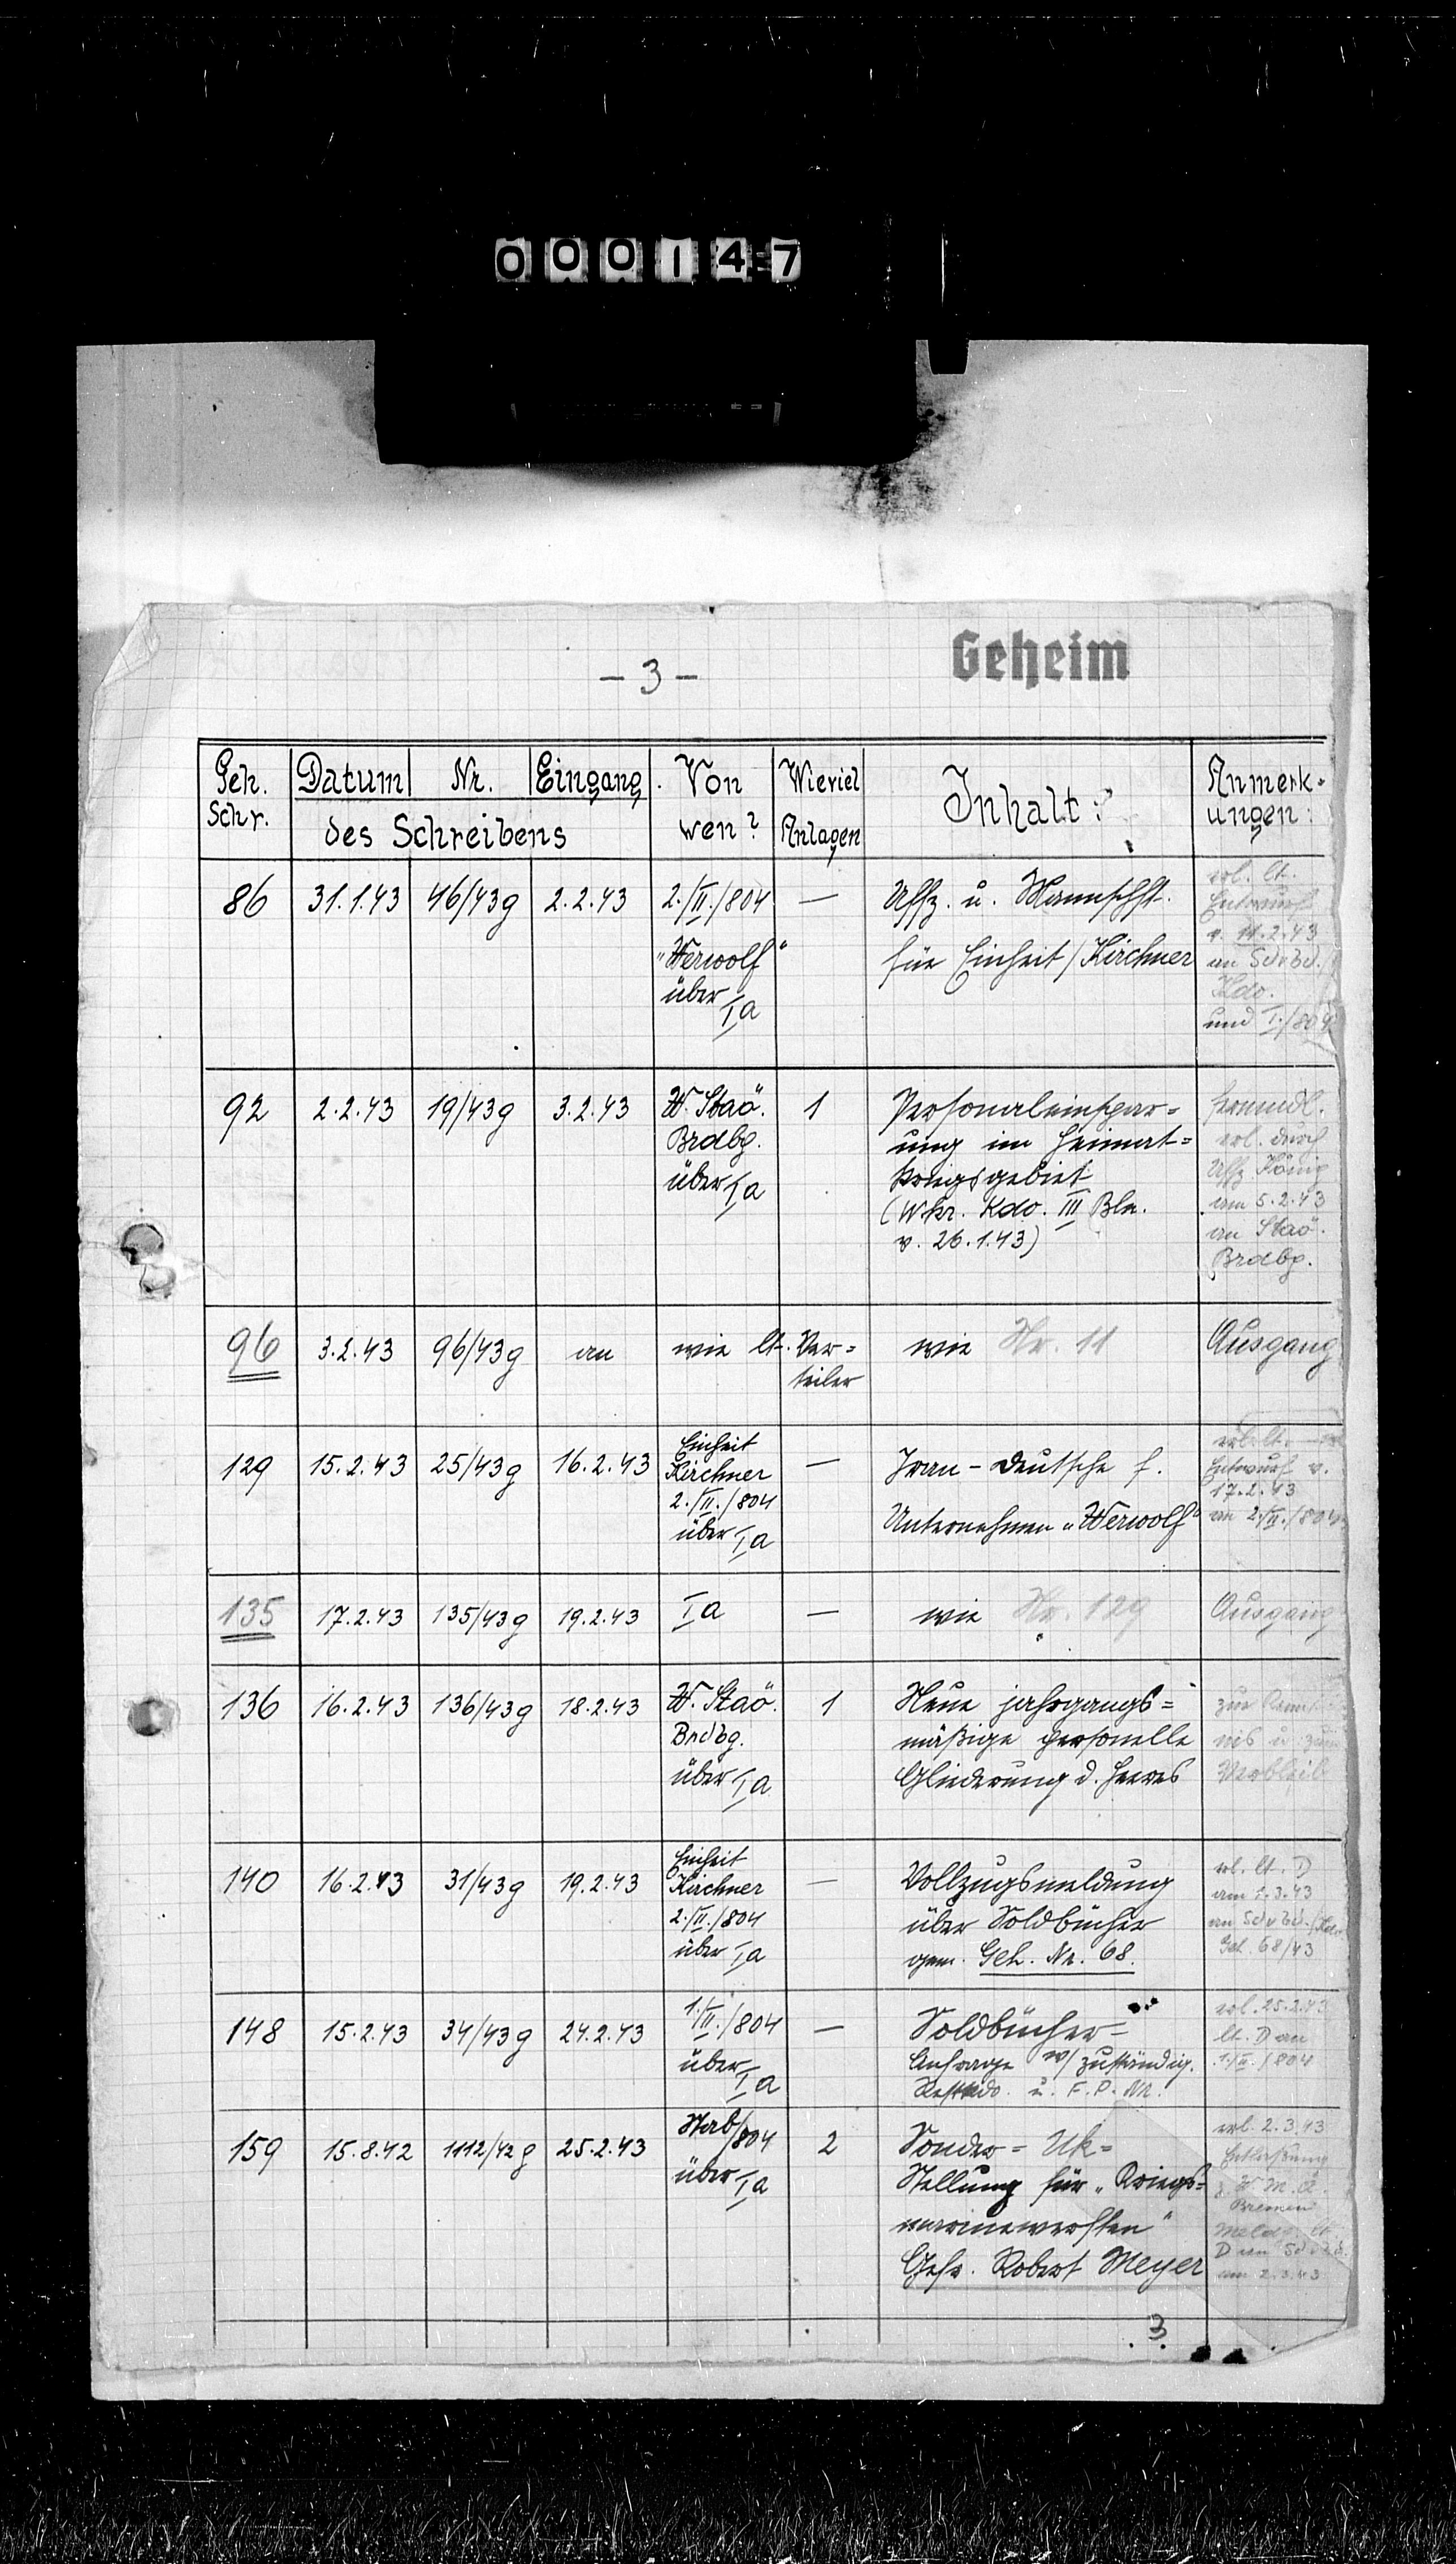 000147
- 3 -
Geheim
Geh. Schr. | Datum | Nr. | Eingang | Von wen? | Wieviel Anlagen | Inhalt: | Anmerk-ungen:
des Schreibens
86 31.1.43 46/43g 2.2.43 2./II./804 — Uffz. u. Mannschft. erl. lt.
Entwurf
v. 11.2.43
"Werwolf" für Einheit/Kirchner an Sdvbd./
über Kdo.
Ia und I./804
92 2.2.43 19/43g 3.2.43 W. Staö. 1 Personaleinspar= fernmdl.
Brdbg. ung im Heimat= erl. durch
über Ia kriegsgebiet Uffz. König
(Wkr. Kdo. III Bln. am 5.2.43
v. 26.1.43) an Staö.
Brdbg.
96 3.2.43 96/43g an wie lt. Ver= wie Nr. 11 Ausgang
teiler
129 15.2.43 25/43g 16.2.43 Einheit — erl. lt.
Kirchner Iran-Deutsche f. Entwurf v.
2./II./804 17.2.43
über Ia Unternehmen "Werwolf" an 2./II./804
135 17.2.43 135/43g 19.2.43 Ia — wie Nr. 129 Ausgang
136 16.2.43 136/43g 18.2.43 W. Staö. 1 Neue jahrgangs= zur Kennt
Brdbg. mäßige personelle nis u. zum
über Ia Gliederung d. Heeres Verbleib
140 16.2.43 31/43g 19.2.43 Einheit — erl. lt. D
Kirchner Vollzugsmeldung am 1.3.43
2./II./804 über Soldbücher an Sdvbd./Kdo.
über Ia gem. Geh. Nr. 68. Geh. 68/43
148 15.2.43 34/43g 24.2.43 1./II./804 — Soldbücher- erl. 25.2.43
über Anfrage w/ zuständig. lt. D an
Ia u. F.P. Nr. 1./II./804
159 15.8.42 1112/42g 25.2.43 Stab/804 2 Sonder=Uk= erl. 2.3.43
über Ia Stellung für "Kriegs= Entlassung
marinewerften" z. W.M.A.
Bremen
Gefr. Robert Meyer Meldg. lt.
D an
am 2.3.43
3.